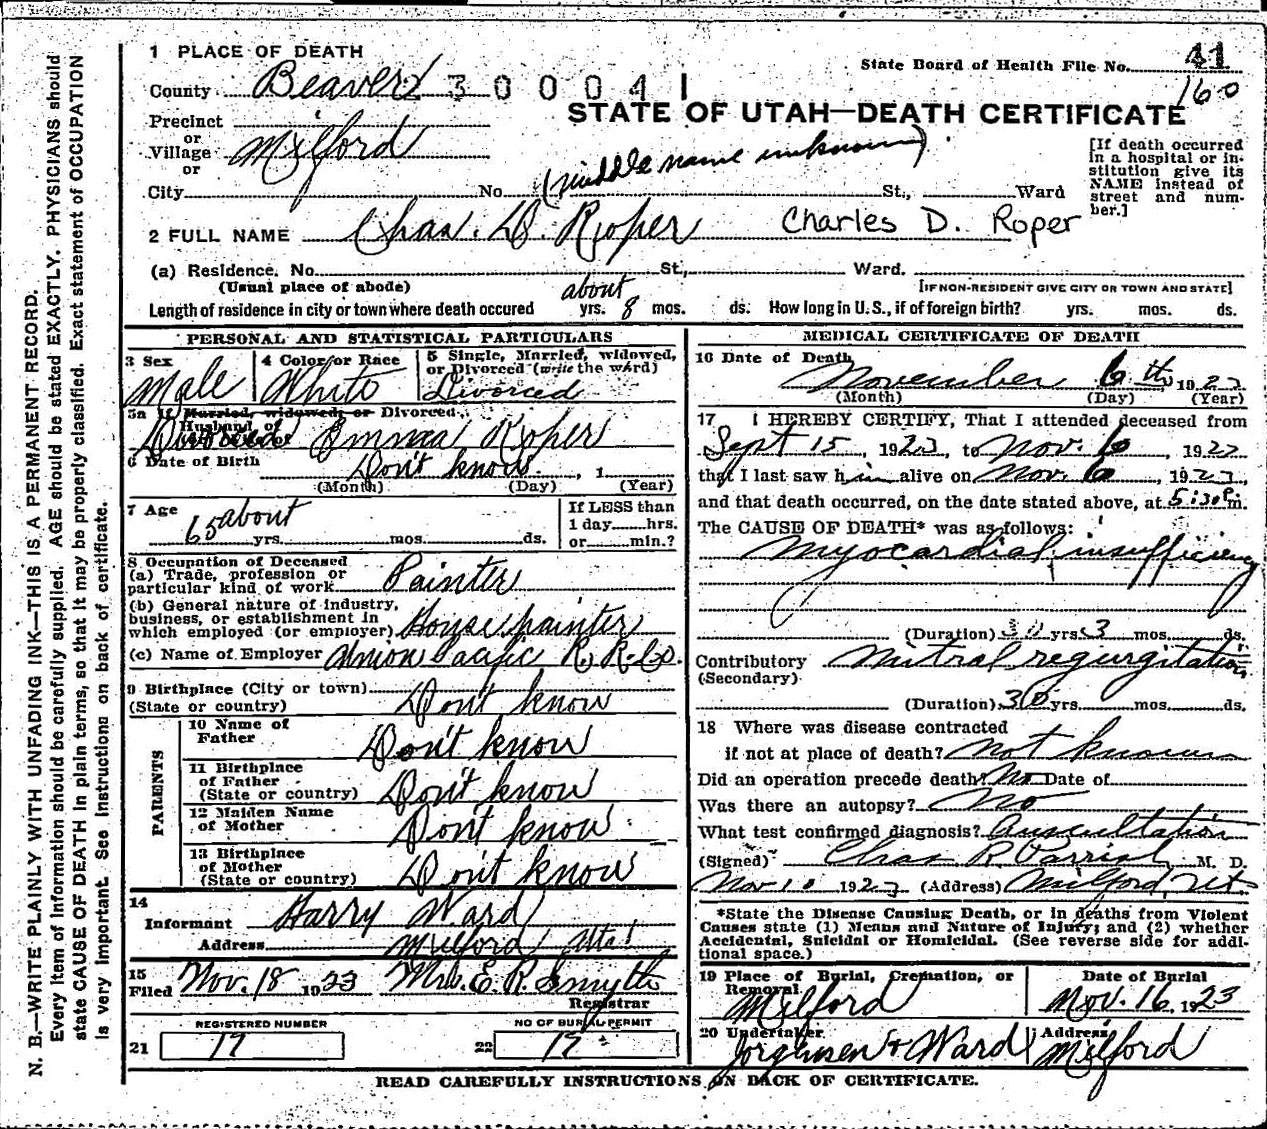 1 PLACE OF DEATH
State Board of Health File No. 41
160
County Beaver 2300041
STATE OF UTAH—DEATH CERTIFICATE
Precinct
or
Village Milford
or
(middle name unknown)
[If death occurred in a hospital or in-
stitution give its
NAME instead of
street and num-
ber.]
City No. St., Ward
2 FULL NAME Chas. D. Roper Charles D. Roper
(a) Residence. No. St., Ward.
(Usual place of abode) [IF NON-RESIDENT GIVE CITY OR TOWN AND STATE]
Length of residence in city or town where death occured about yrs. 8 mos. ds. How long in U.S., if of foreign birth? yrs. mos. ds.
PERSONAL AND STATISTICAL PARTICULARS
3 Sex Male
4 Color or Race White
5 Single, Married, widowed,
or Divorced (write the word)
Divorced
5a If Married, widowed, or Divorced
Husband of
Divorced Emma Roper
6 Date of Birth Don't know, 1
(Month) (Day) (Year)
7 Age about
65 yrs. mos. ds.
If LESS than
1 day hrs.
or min.?
8 Occupation of Deceased
(a) Trade, profession or
particular kind of work Painter
(b) General nature of industry,
business, or establishment in
which employed (or employer) House painter
(c) Name of Employer Union Pacific R. R. Co.
9 Birthplace (City or town)
(State or country) Don't know
PARENTS
10 Name of
Father Don't know
11 Birthplace
of Father
(State or country) Don't know
12 Maiden Name
of Mother Don't know
13 Birthplace
of Mother
(State or country) Don't know
14
Informant Harry Ward
Address Milford Utah
15
Filed Nov. 18 1923 Mrs. E. R. Smyth
Registrar
REGISTERED NUMBER
21 17
NO OF BURIAL PERMIT
22 17
MEDICAL CERTIFICATE OF DEATH
16 Date of Death
November 6th 1923
(Month) (Day) (Year)
17 I HEREBY CERTIFY, That I attended deceased from
Sept 15, 1923, to Nov. 6, 1923
that I last saw him alive on Nov 6, 1923,
and that death occurred, on the date stated above, at 5:30 P. m.
The CAUSE OF DEATH* was as follows:
Myocardial insufficiency
(Duration) 30 yrs 3 mos. ds.
Contributory Mitral regurgitation
(Secondary)
(Duration) 30 yrs mos. ds.
18 Where was disease contracted
if not at place of death? not known
Did an operation precede death? No Date of
Was there an autopsy? No
What test confirmed diagnosis? Auscultation
(Signed) Chas R Parrish, M. D.
Nov 10 1923 (Address) Milford, Ut.
*State the Disease Causing Death, or in deaths from Violent
Causes state (1) Means and Nature of Injury; and (2) whether
Accidental, Suicidal or Homicidal. (See reverse side for addi-
tional space.)
19 Place of Burial, Cremation, or
Removal Milford
Date of Burial
Nov. 16, 1923
20 Undertaker
Jorgensen & Ward
Address
Milford
READ CAREFULLY INSTRUCTIONS ON BACK OF CERTIFICATE.
N. B.—WRITE PLAINLY WITH UNFADING INK—THIS IS A PERMANENT RECORD.
Every item of information should be carefully supplied. AGE should be stated EXACTLY. PHYSICIANS should
state CAUSE OF DEATH in plain terms, so that it may be properly classified. Exact statement of OCCUPATION
is very important. See instructions on back of certificate.